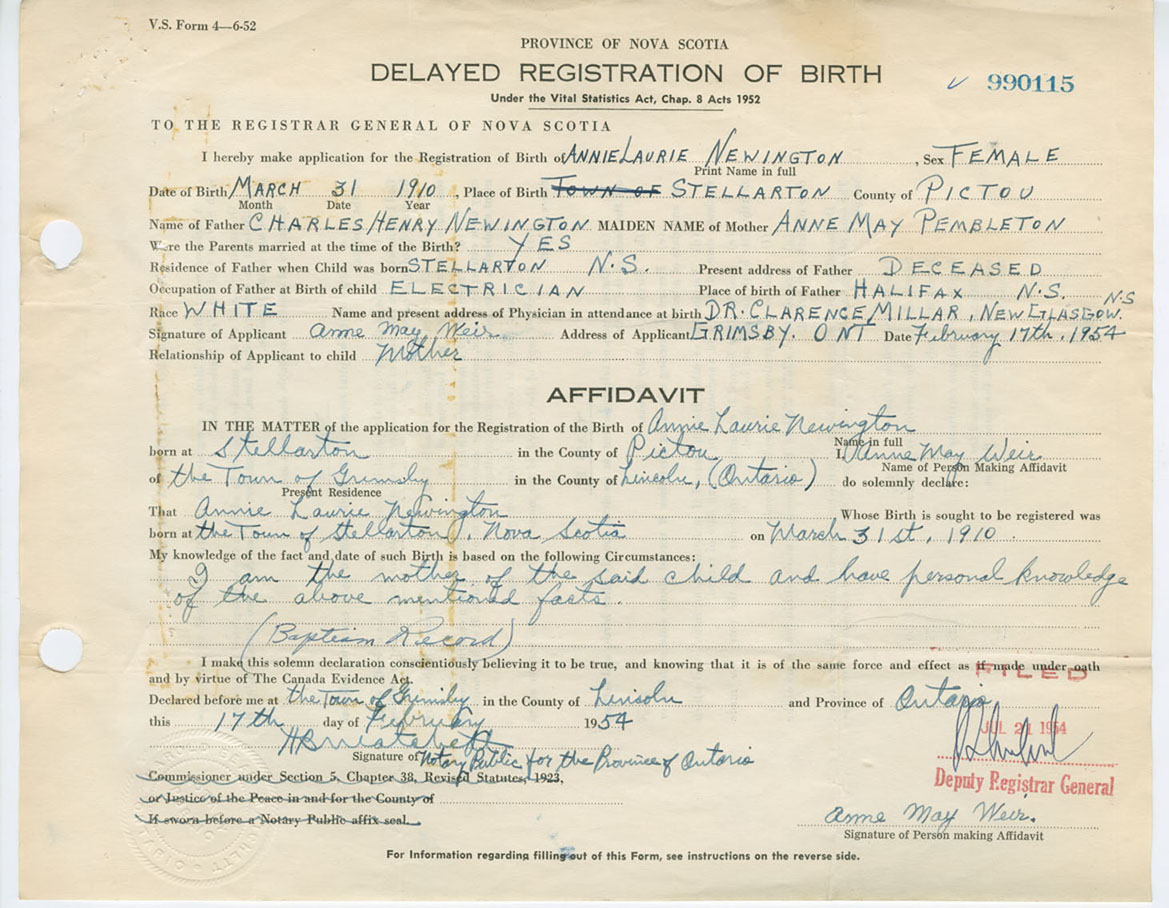 V.S. Form 4—6-52
PROVINCE OF NOVA SCOTIA
DELAYED REGISTRATION OF BIRTH
990115
Under the Vital Statistics Act, Chap. 8 Acts 1952
TO THE REGISTRAR GENERAL OF NOVA SCOTIA
I hereby make application for the Registration of Birth of ANNIE LAURIE NEWINGTON, Sex FEMALE
Print Name in full
Date of Birth MARCH 31 1910, Place of Birth TOWN OF STELLARTON County of PICTOU
Month Date Year
Name of Father CHARLES HENRY NEWINGTON MAIDEN NAME of Mother ANNE MAY PEMBLETON
Were the Parents married at the time of the Birth? YES
Residence of Father when Child was born STELLARTON N.S. Present address of Father DECEASED
Occupation of Father at Birth of child ELECTRICIAN Place of birth of Father HALIFAX N.S.
Race WHITE Name and present address of Physician in attendance at birth DR. CLARENCE MILLAR, NEW GLASGOW. N.S
Signature of Applicant Anne May Weir Address of Applicant GRIMSBY. ONT Date February 17th, 1954
Relationship of Applicant to child Mother
AFFIDAVIT
IN THE MATTER of the application for the Registration of the Birth of Annie Laurie Newington
Name in full
born at Stellarton in the County of Pictou I, Anne May Weir
Name of Person Making Affidavit
of the Town of Grimsby in the County of Lincoln, (Ontario) do solemnly declare:
Present Residence
That Annie Laurie Newington Whose Birth is sought to be registered was
born at the Town of Stellarton, Nova Scotia on March 31st, 1910.
My knowledge of the fact and date of such Birth is based on the following Circumstances:
I am the mother of the said child and have personal knowledge
of the above mentioned facts.
(Baptism Record)
I make this solemn declaration conscientiously believing it to be true, and knowing that it is of the same force and effect as if made under oath
and by virtue of The Canada Evidence Act.
FILED
Declared before me at the Town of Grimsby in the County of Lincoln and Province of Ontario
this 17th day of February 1954
JUL 21 1954
Signature of Notary Public for the Province of Ontario
Commissioner under Section 5, Chapter 38, Revised Statutes, 1923,
Deputy Registrar General
or Justice of the Peace in and for the County of
If sworn before a Notary Public affix seal.
Anne May Weir.
Signature of Person making Affidavit
For Information regarding filling out of this Form, see instructions on the reverse side.